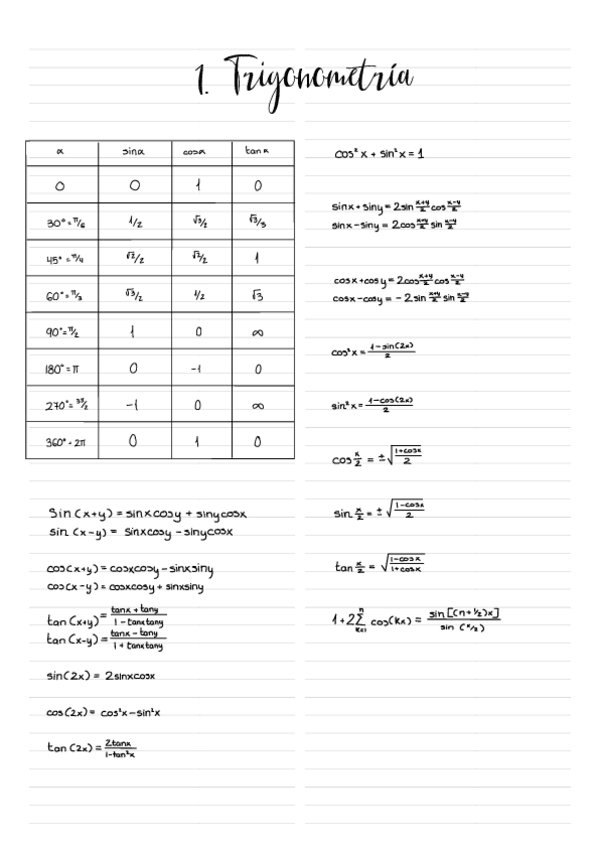 1. Trigonometría
α sinα cosα tanα
0 0 1 0
30°=π/6 1/2 √3/2 √3/3
45°=π/4 √2/2 √2/2 1
60°=π/3 √3/2 1/2 √3
90°=π/2 1 0 ∞
180°=π 0 -1 0
270°=3π/2 -1 0 ∞
360°=2π 0 1 0
Sin(x+y) = sinxcosy + sinycosx
sin(x-y) = sinxcosy - sinycosx
cos(x+y) = cosxcosy - sinxsiny
cos(x-y) = cosxcosy + sinxsiny
tan(x+y) = (tanx + tany)/(1 - tanxtany)
tan(x-y) = (tanx - tany)/(1 + tanxtany)
sin(2x) = 2sinxcosx
cos(2x) = cos²x - sin²x
tan(2x) = 2tanx/(1-tan²x)
cos²x + sin²x = 1
sinx + siny = 2sin (x+y)/2 cos (x-y)/2
sinx - siny = 2cos (x+y)/2 sin (x-y)/2
cosx + cosy = 2cos (x+y)/2 cos (x-y)/2
cosx - cosy = -2sin (x+y)/2 sin (x-y)/2
cos²x = (1-sin(2x))/2
sin²x = (1-cos(2x))/2
cos x/2 = ±√((1+cosx)/2)
sin x/2 = ±√((1-cosx)/2)
tan x/2 = √((1-cosx)/(1+cosx))
1+2∑ⁿ cos(kx) = sin[(n+1/2)x]/sin(x/2)